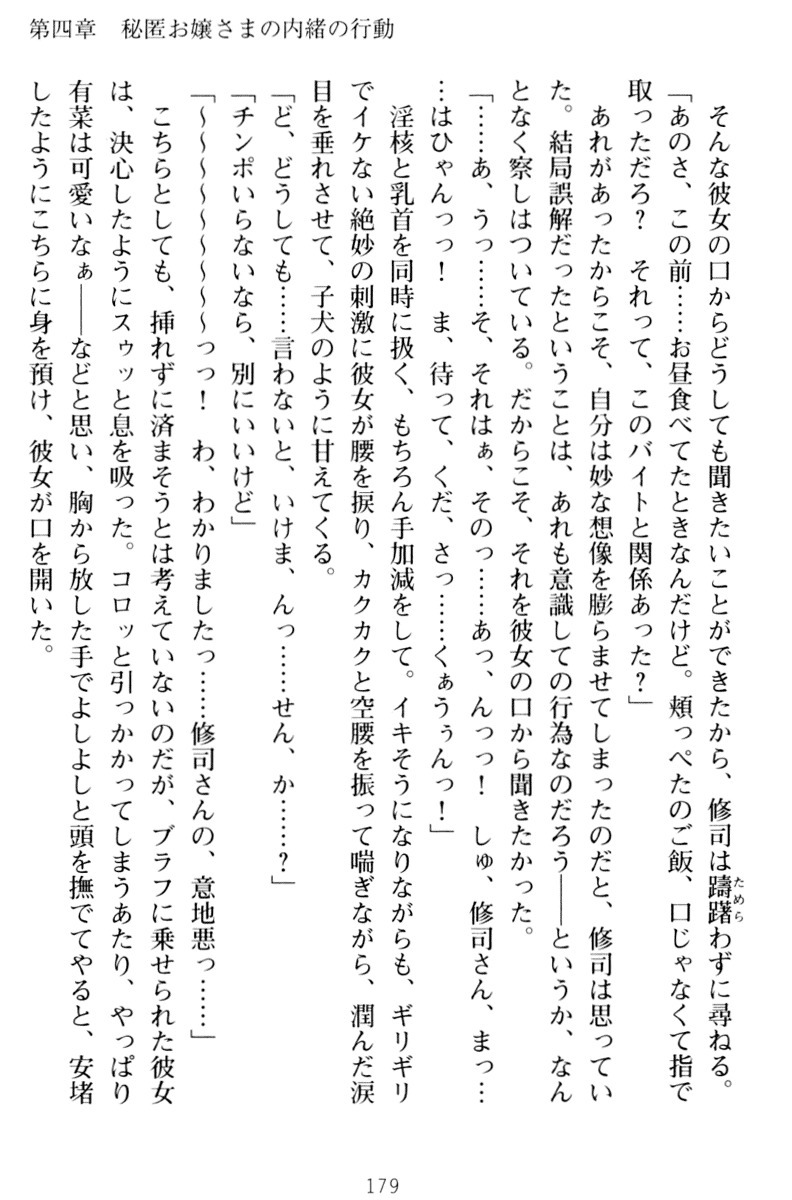 第四章　秘匿お嬢さまの内緒の行動
　そんな彼女の口からどうしても聞きたいことができたから、修司は躊躇わずに尋ねる。
ためら
「あのさ、この前……お昼食べてたときなんだけど。頬っぺたのご飯、口じゃなくて指で
取っただろ？　それって、このバイトと関係あった？」
　あれがあったからこそ、自分は妙な想像を膨らませてしまったのだと、修司は思ってい
た。結局誤解だったということは、あれも意識しての行為なのだろう――というか、なん
となく察しはついている。だからこそ、それを彼女の口から聞きたかった。
「……あ、うっ……そ、それはぁ、そのっ……あっ、んっっ！　しゅ、修司さん、まっ…
…はひゃんっっ！　ま、待って、くだ、さっ……くぁうぅんっ！」
　淫核と乳首を同時に扱く、もちろん手加減をして。イキそうになりながらも、ギリギリ
でイケない絶妙の刺激に彼女が腰を捩り、カクカクと空腰を振って喘ぎながら、潤んだ涙
目を垂れさせて、子犬のように甘えてくる。
「ど、どうしても……言わないと、いけま、んっ……せん、か……？」
「チンポいらないなら、別にいいけど」
「～～～～～～～～っっ！　わ、わかりましたっ……修司さんの、意地悪っ……」
　こちらとしても、挿れずに済まそうとは考えていないのだが、ブラフに乗せられた彼女
は、決心したようにスゥッと息を吸った。コロッと引っかかってしまうあたり、やっぱり
有菜は可愛いなぁ――などと思い、胸から放した手でよしよしと頭を撫でてやると、安堵
したようにこちらに身を預け、彼女が口を開いた。
179